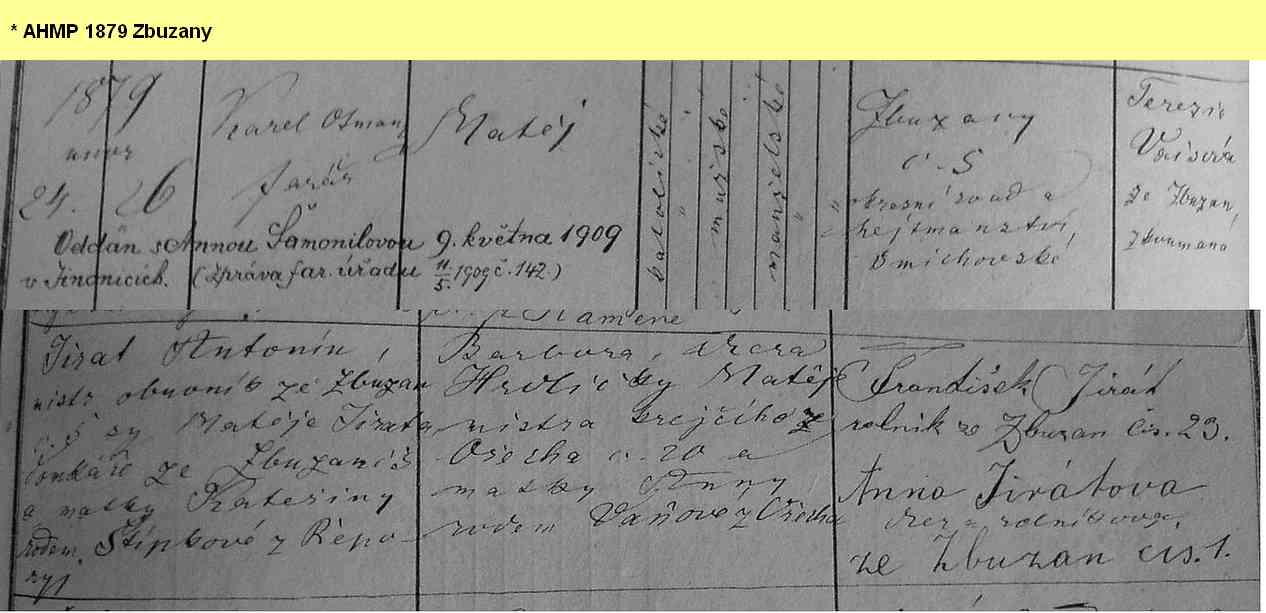 * AHMP 1879 Zbuzany
1879
únor
24. 26
Karel Otman
farář
Matěj
katolické
"
mužské
manželské
"
"
Zbuzany
č. 5
okresní soud a
hejtmanství
Smíchovské
Terezie
ze Zbuzan,
zkoumaná
Oddán s Annou Šamonilovou 9. května 1909
v Jinonicích. (Zpráva far. úřadu 11/5. 1909 č. 142.)
Kamene
Jirat Antonín,
mistr obuvník ze Zbuzan
č. 5 sy Matěje Jirata
ze Zbuzan č. 5
a matky Kateřiny
rodem Štípkové z Řepo-
ryj.
Barbora, dcera
Hrdličky Matěje
mistra krejčího z
Ořecha č. 20 a
matky Anny
rodem Vaňové z Ořecha
František Jirát
rolník ze Zbuzan čís. 23.
Anna Jirátova
dcera rolníkova,
ze Zbuzan čís. 1.